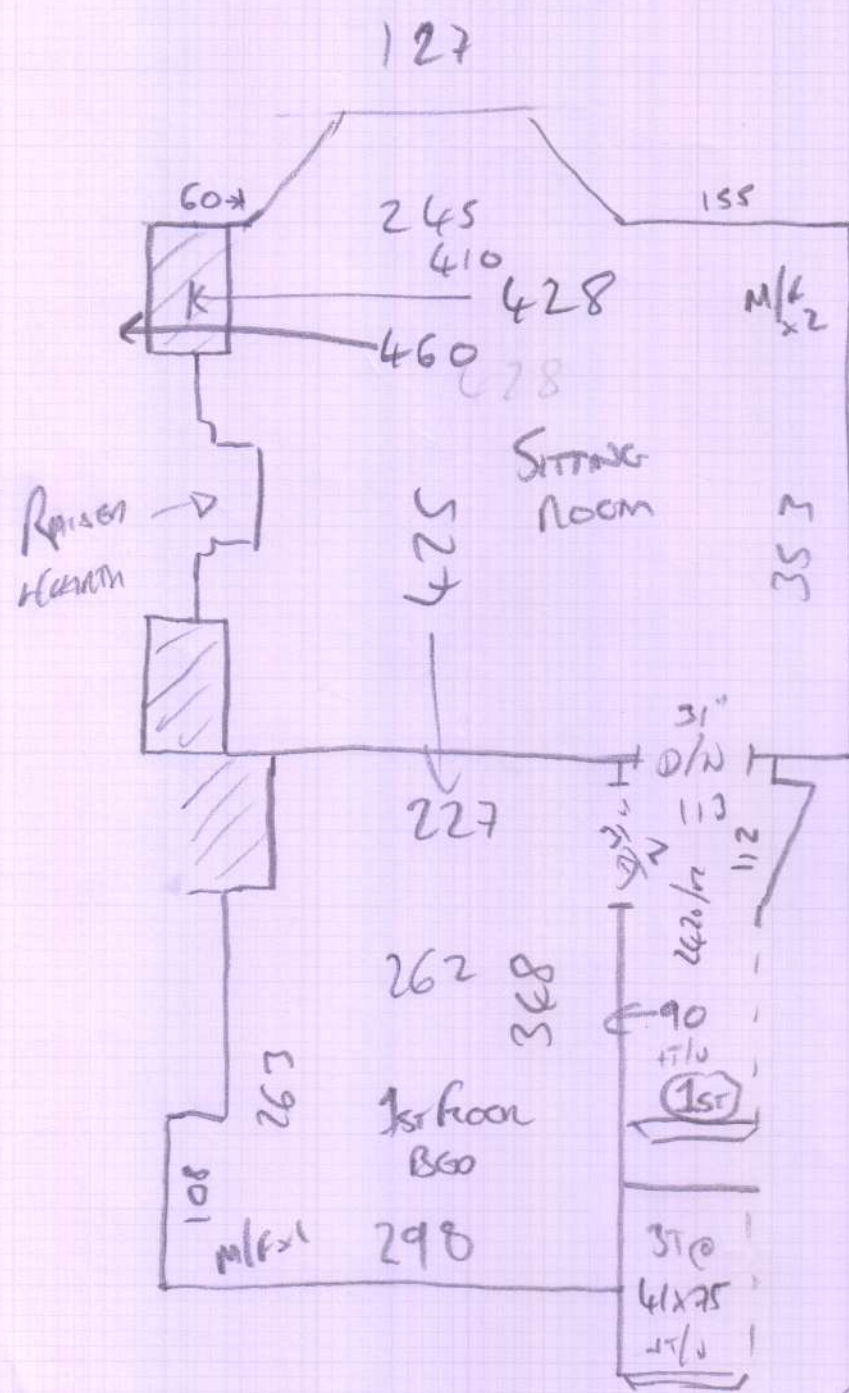 127
60
245
155
410
K
428
M/F
x2
460
428
SITTING
ROOM
RAISED
HEARTH
425
353
31"
D/N
227
113
112
262
348
90
+T/N
1ST
263
1ST FLOOR
BED
108
M/F x1
298
3T@
41x75
+T/N